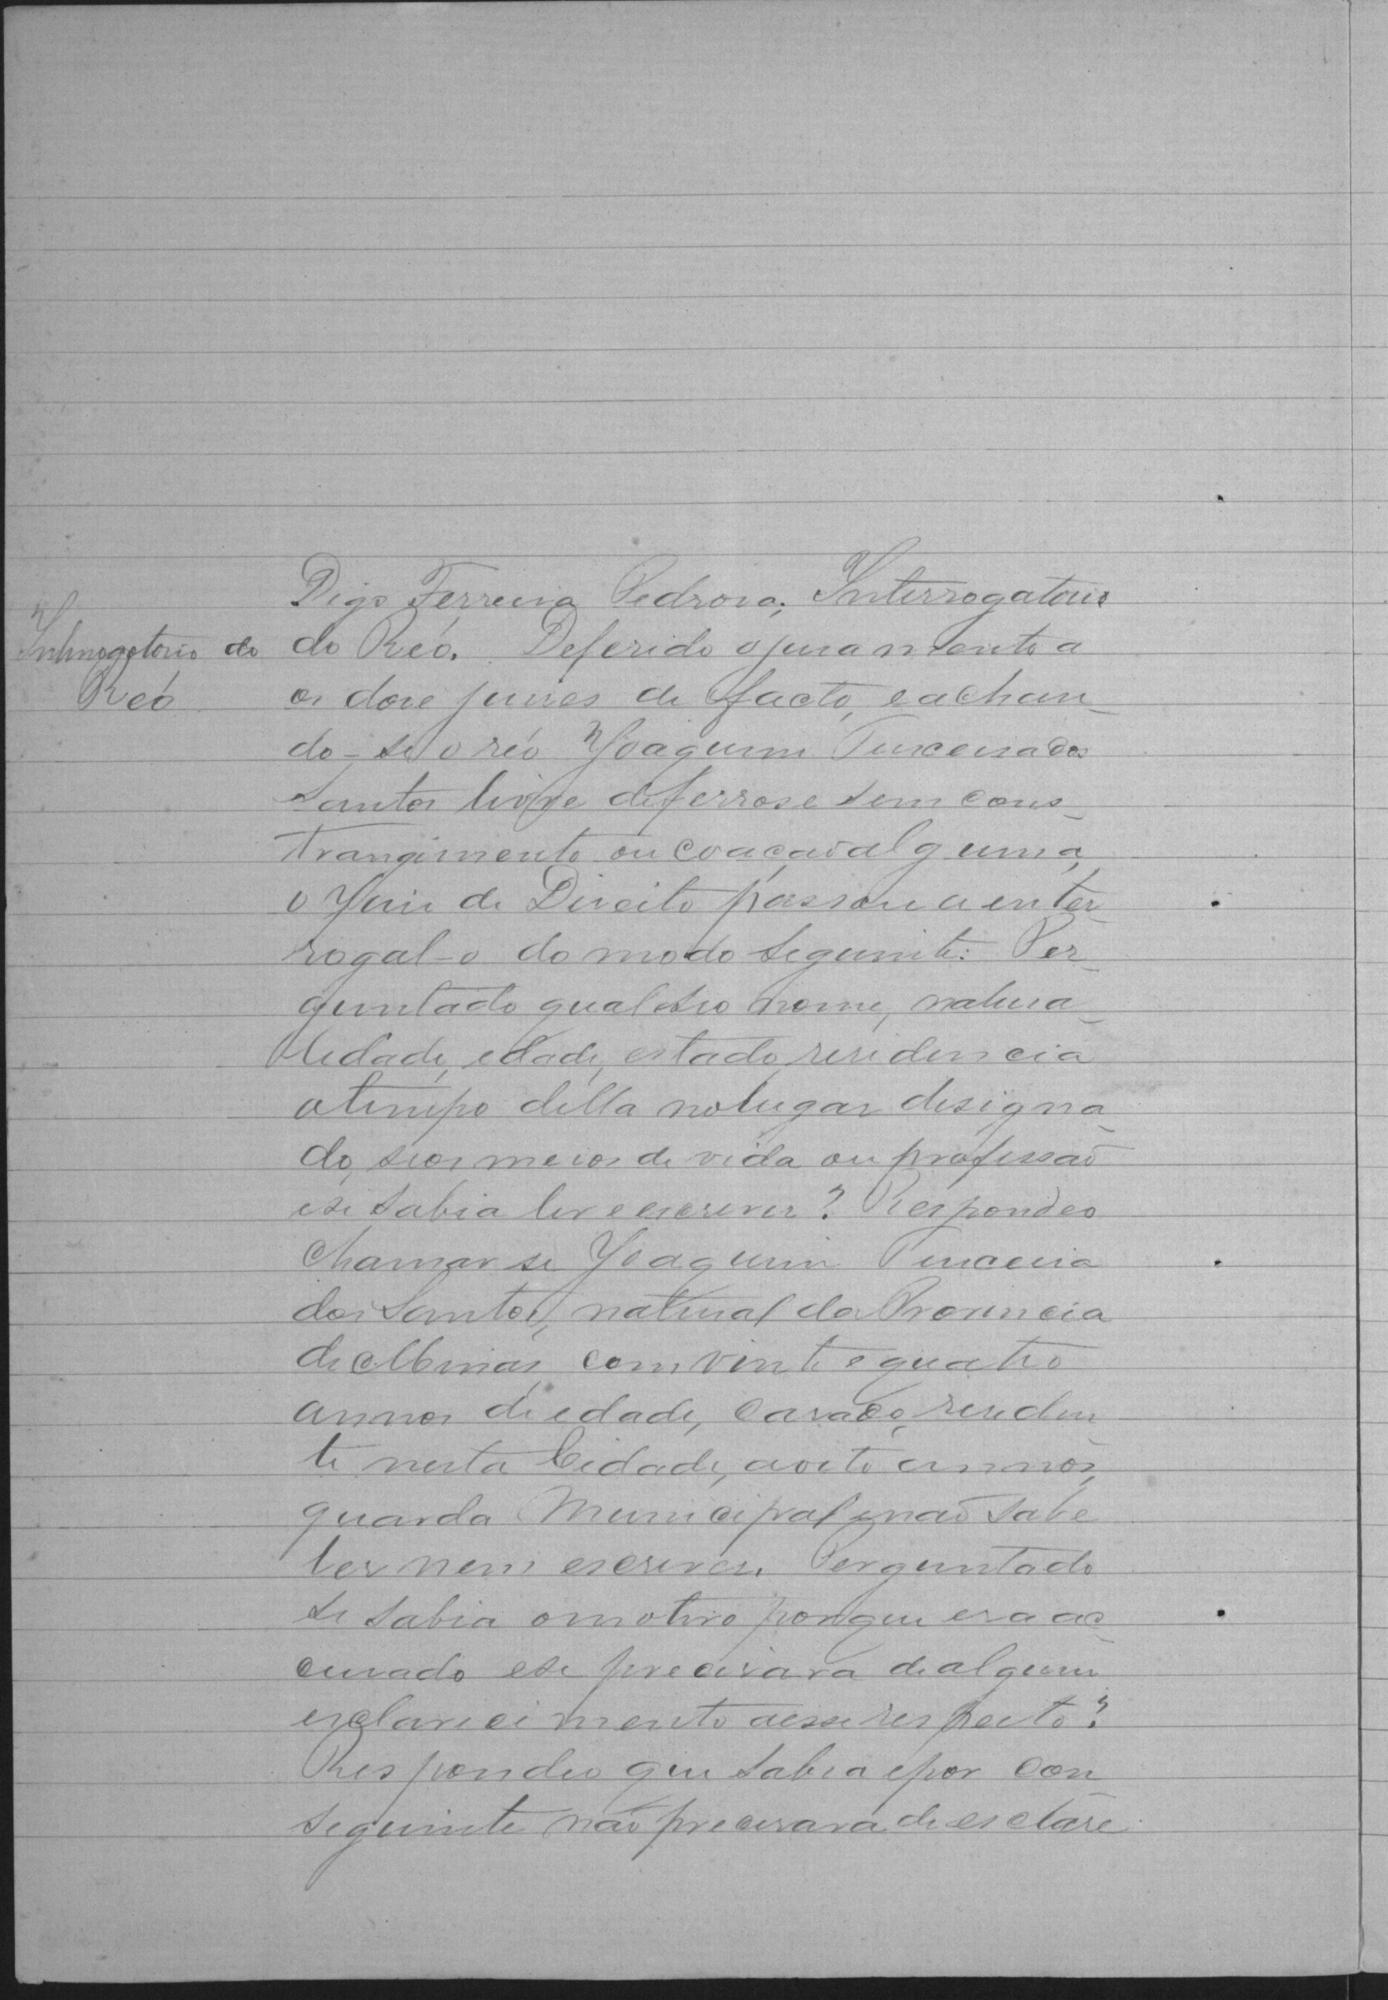 Interrogatorio do
Reó
Digo Ferreira Pedroso; Interrogatorio
do Reó. Deferido o juramento a
os dose juises de facto, e achan-
do-se o reó Joaquim
Santos livre de ferros e sem cons-
trangimento ou coação alguma,
o Juis de Direito passou a enter-
rogal-o do modo seguinte: Per-
guntado qual seo nome, natura-
lidade, edade, estado, residencia
o tempo della no lugar designa-
do, seos meios de vida ou profissão
e se sabia ler e escrever? Respondeo
chamar se Joaquim
dos Santos, natural da Provincia
de Minas, com vinte e quatro
annos de edade, casado, residen
te nesta Cidade, a oito annos,
guarda Municipal e não sabe
ler nem escrever. Perguntado
se sabia o motivo porque era ac-
cusado e se precisava de algum
esclarecimento a esse respeito?
Respondeo que sabia e por con
seguinte não precisava de esclare